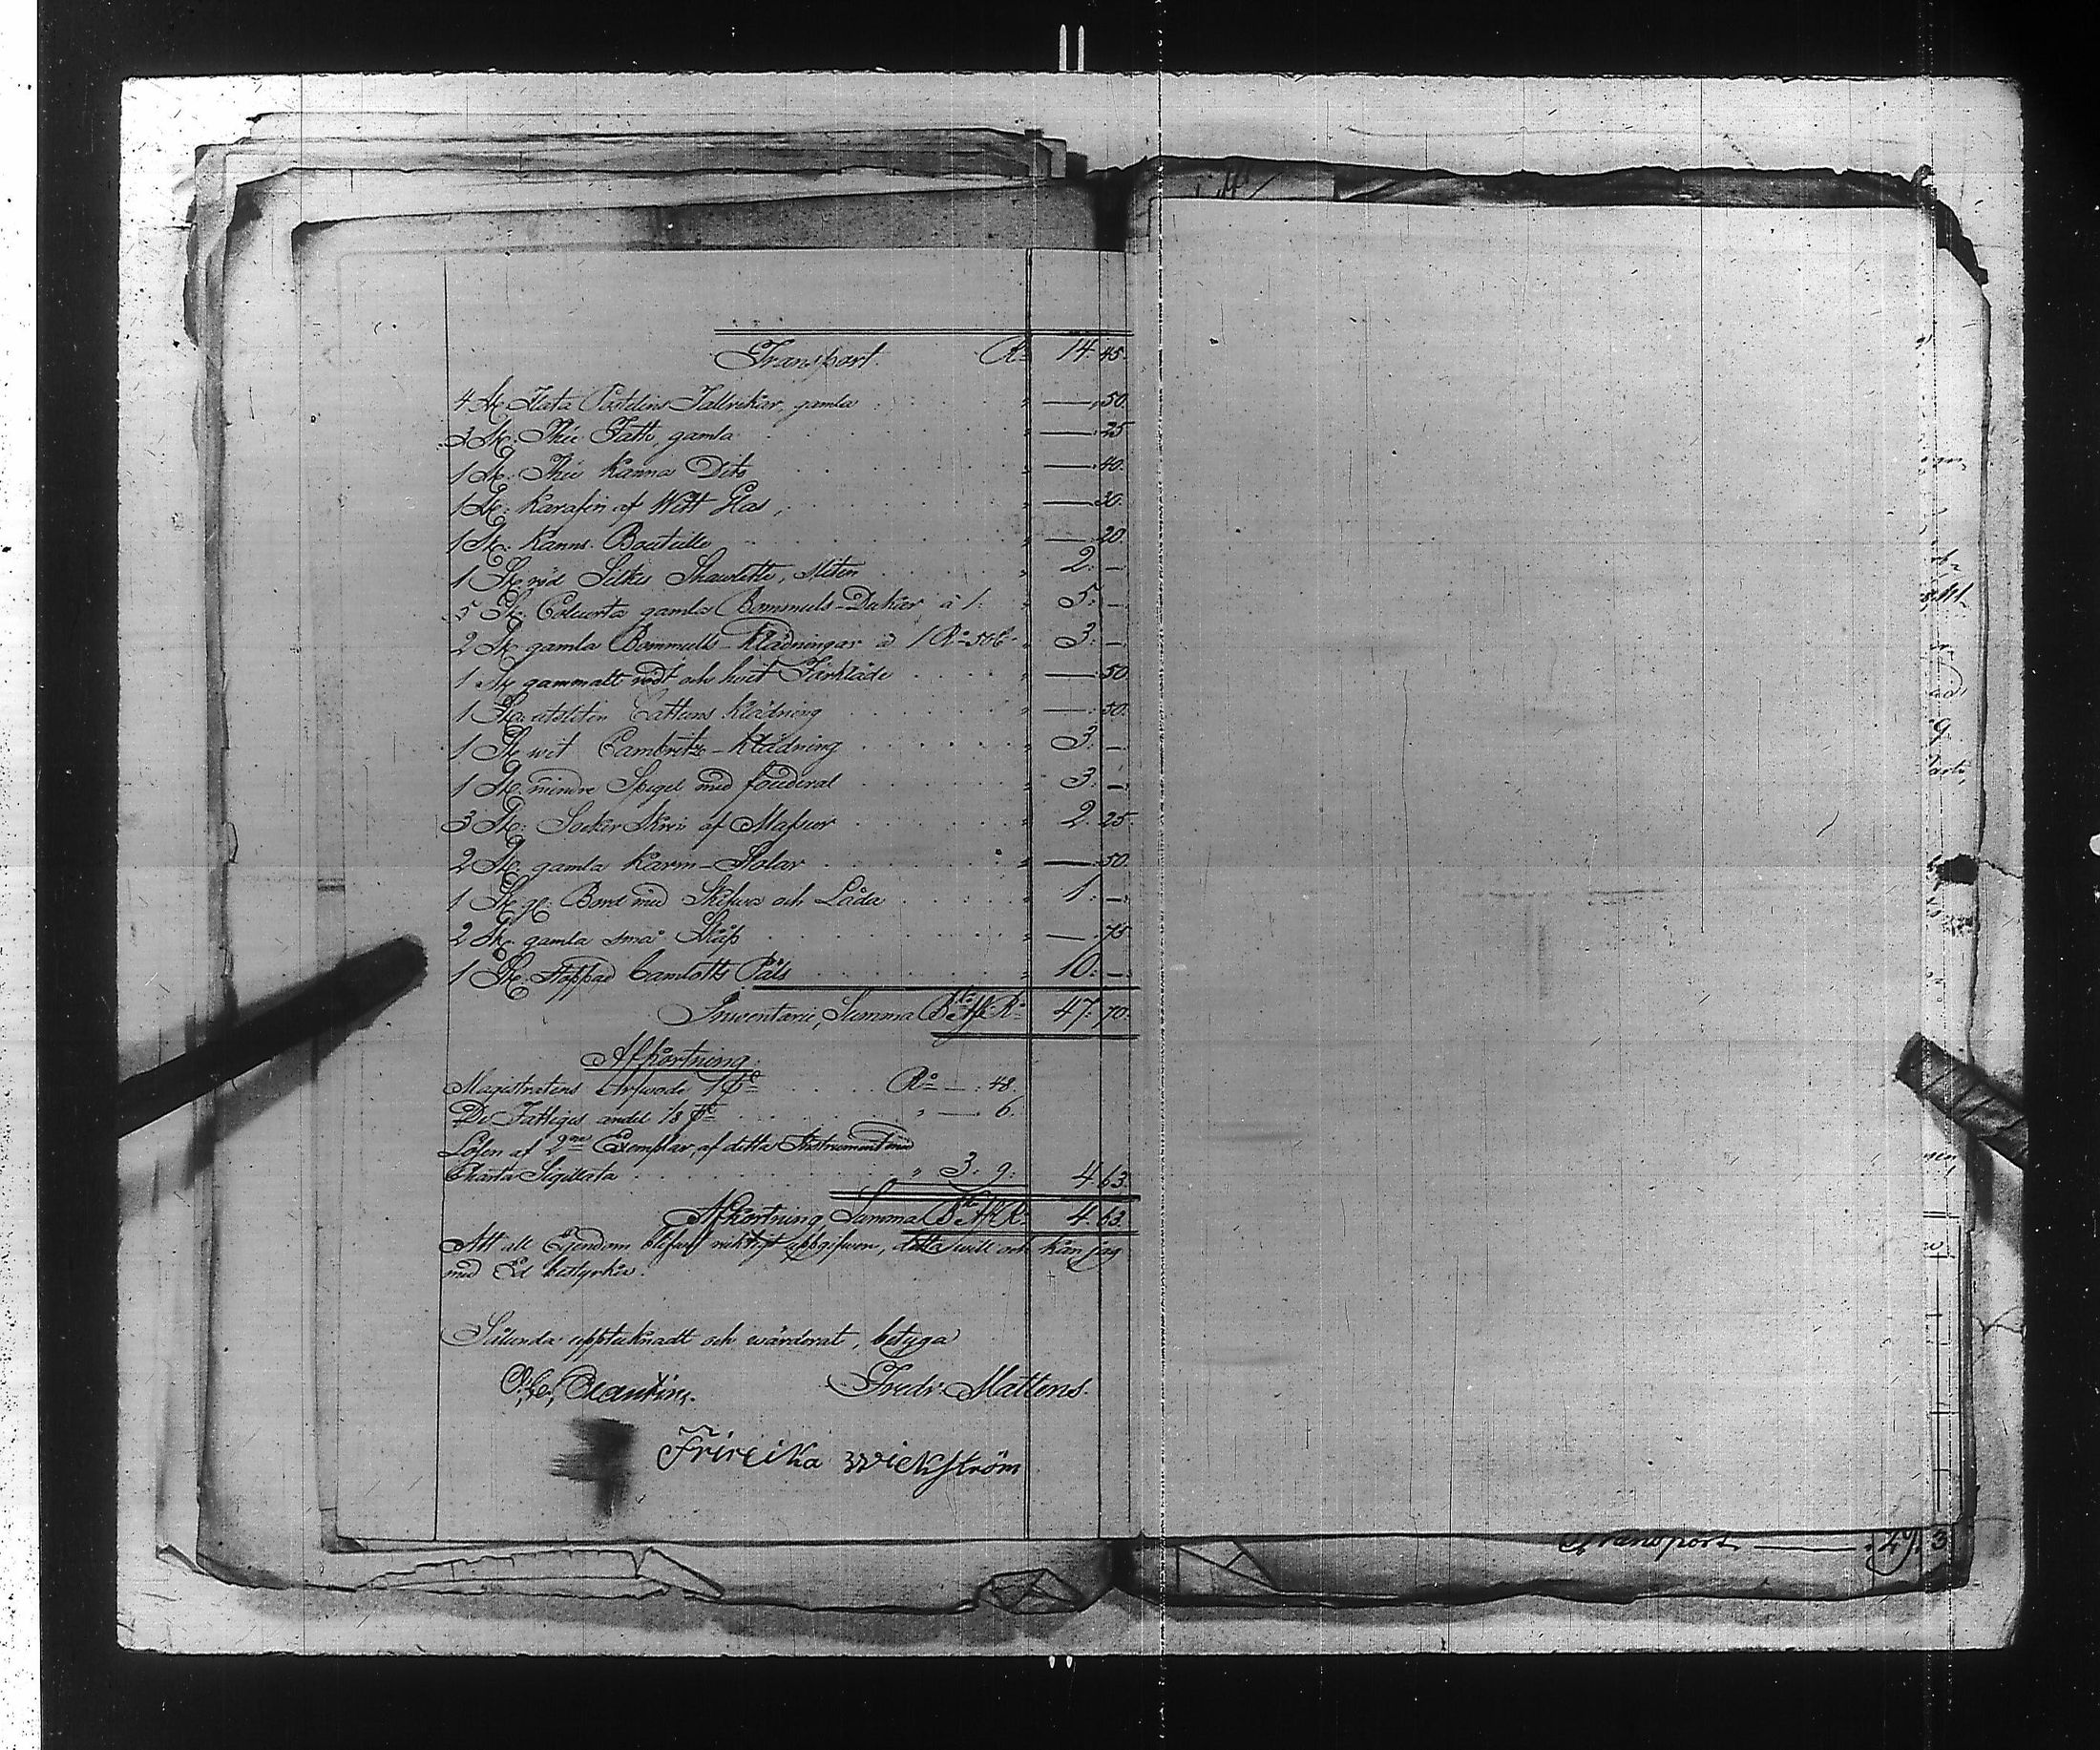 Transport. Ro 14. 45.
4 St. flata Postelins Tallrikar, gamla " — 50.
3 St. Thée Fath, gamla " — 25
1 St. Thée kanna Dito " — 40.
1 St. karafin af Witt Glas " — 30.
1 St. Kanns-Bouteille " — 20.
1 St. röd Silkes Shawlette, sliten " 2. —
5 St. Coleurta gamla Bommuls-Dukar à 1. " 5. —
2 St. gamla Bommulls-Klädningar à 1 Ro 50 C. " 3. —
1 St. gammalt rödt och hvit Förkläde " — 50
1 St. utsliten Cattuns klädning " — 50.
1 St. wit Cambritz-klädning " 3. —
1 St. mindre Spegel med fouderal " 3. —
3 St. Socker Skrin af Massur " 2. 25.
2 St. gamla Karm-Stolar " — 50.
1 St. gl. Bord med Skifwa och Låda " 1. —
2 St. gamla små Skåp " — 75
1 St. stoppad Camlotts Päls " 10. —
Inventarii Summa Bco Ass. Ro 47. 70.
Afkortning.
Magistratens Arfwode 1 pC Ro — 48.
De Fattiges andel 1/8 pC " — 6.
Lösen af 2ne Exemplar, af detta Instrument med
Charta Sigillata " 3. 9. 4. 63.
Afkortning Summa Bco Ass. Ro 4. 63.
Att all Egendom blifwit riktigt uppgifwen, detta will och kan jag
med Ed bestyrka.
Sålunda upptecknadt och wärderat, betyga
Fredr. Mattens.
Frireika wickström
Transport — 29. 3